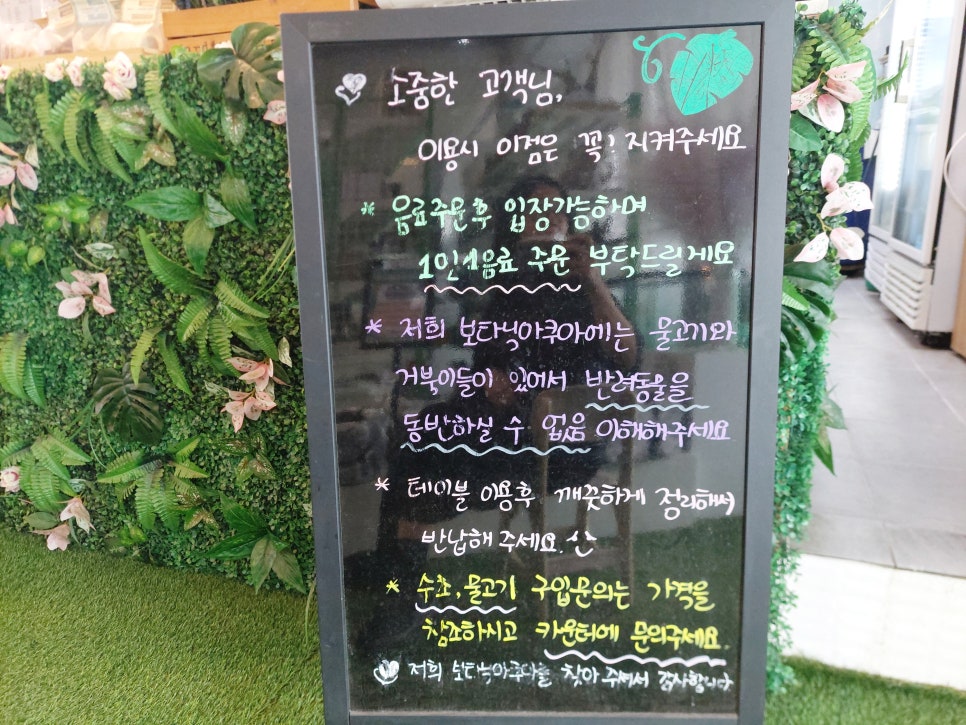 소중한 고객님,
이용시 이점은 꼭! 지켜주세요
* 음료주문후 입장가능하며
1인1음료 주문 부탁드릴게요
* 저희 보타닉아쿠아에는 물고기와
거북이들이 있어서 반려동물을
동반하실 수 없음 이해해주세요
* 테이블 이용후 깨끗하게 정리해서
반납해 주세요.
* 수초, 물고기 구입문의는 가격을
참조하시고 카운터에 문의주세요.
저희 보타닉아쿠아를 찾아주셔서 감사합니다